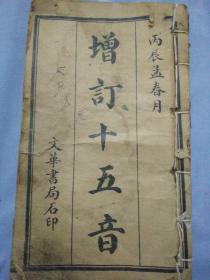 丙辰孟春月
增訂十五音
文華書局石印